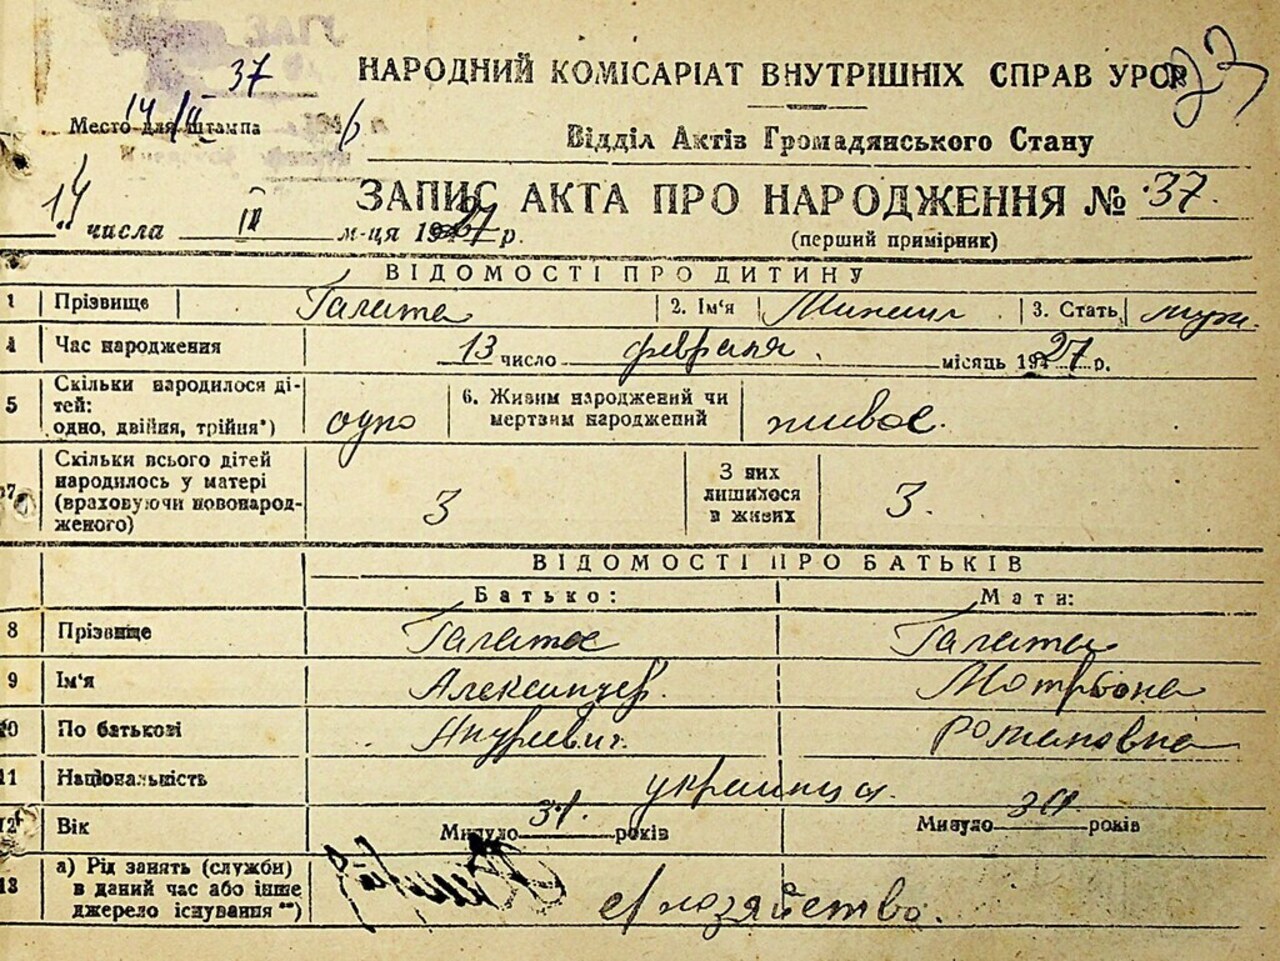 37
НАРОДНИЙ КОМІСАРІАТ ВНУТРІШНІХ СПРАВ УРСР
14/II
Место для штампа
Відділ Актів Громадянського Стану
ЗАПИС АКТА ПРО НАРОДЖЕННЯ № 37.
14 числа II м-ця 1927 р.
(перший примірник)
ВІДОМОСТІ ПРО ДИТИНУ
1 Прізвище Галата 2. Ім'я Михаил 3. Стать муж.
4 Час народження 13 число февраля місяць 1927 р.
5 Скільки народилося ді-
тей:
одно, двійня, трійня*) одно 6. Живим народжений чи
мертвим народжений живое.
7 Скільки всього дітей
народилось у матері
(враховуючи новонарод-
женого) 3 З них
лишилося
в живих 3.
ВІДОМОСТІ ПРО БАТЬКІВ
Батько: Мати:
8 Прізвище Галата Галата
9 Ім'я Александр. Мотрона
10 По батькові Романовна
11 Національність украинца.
12 Вік Минуло 31. років Минуло років
13 а) Рід занять (служби)
в даний час або інше
джерело існування **) с/хозяйство.